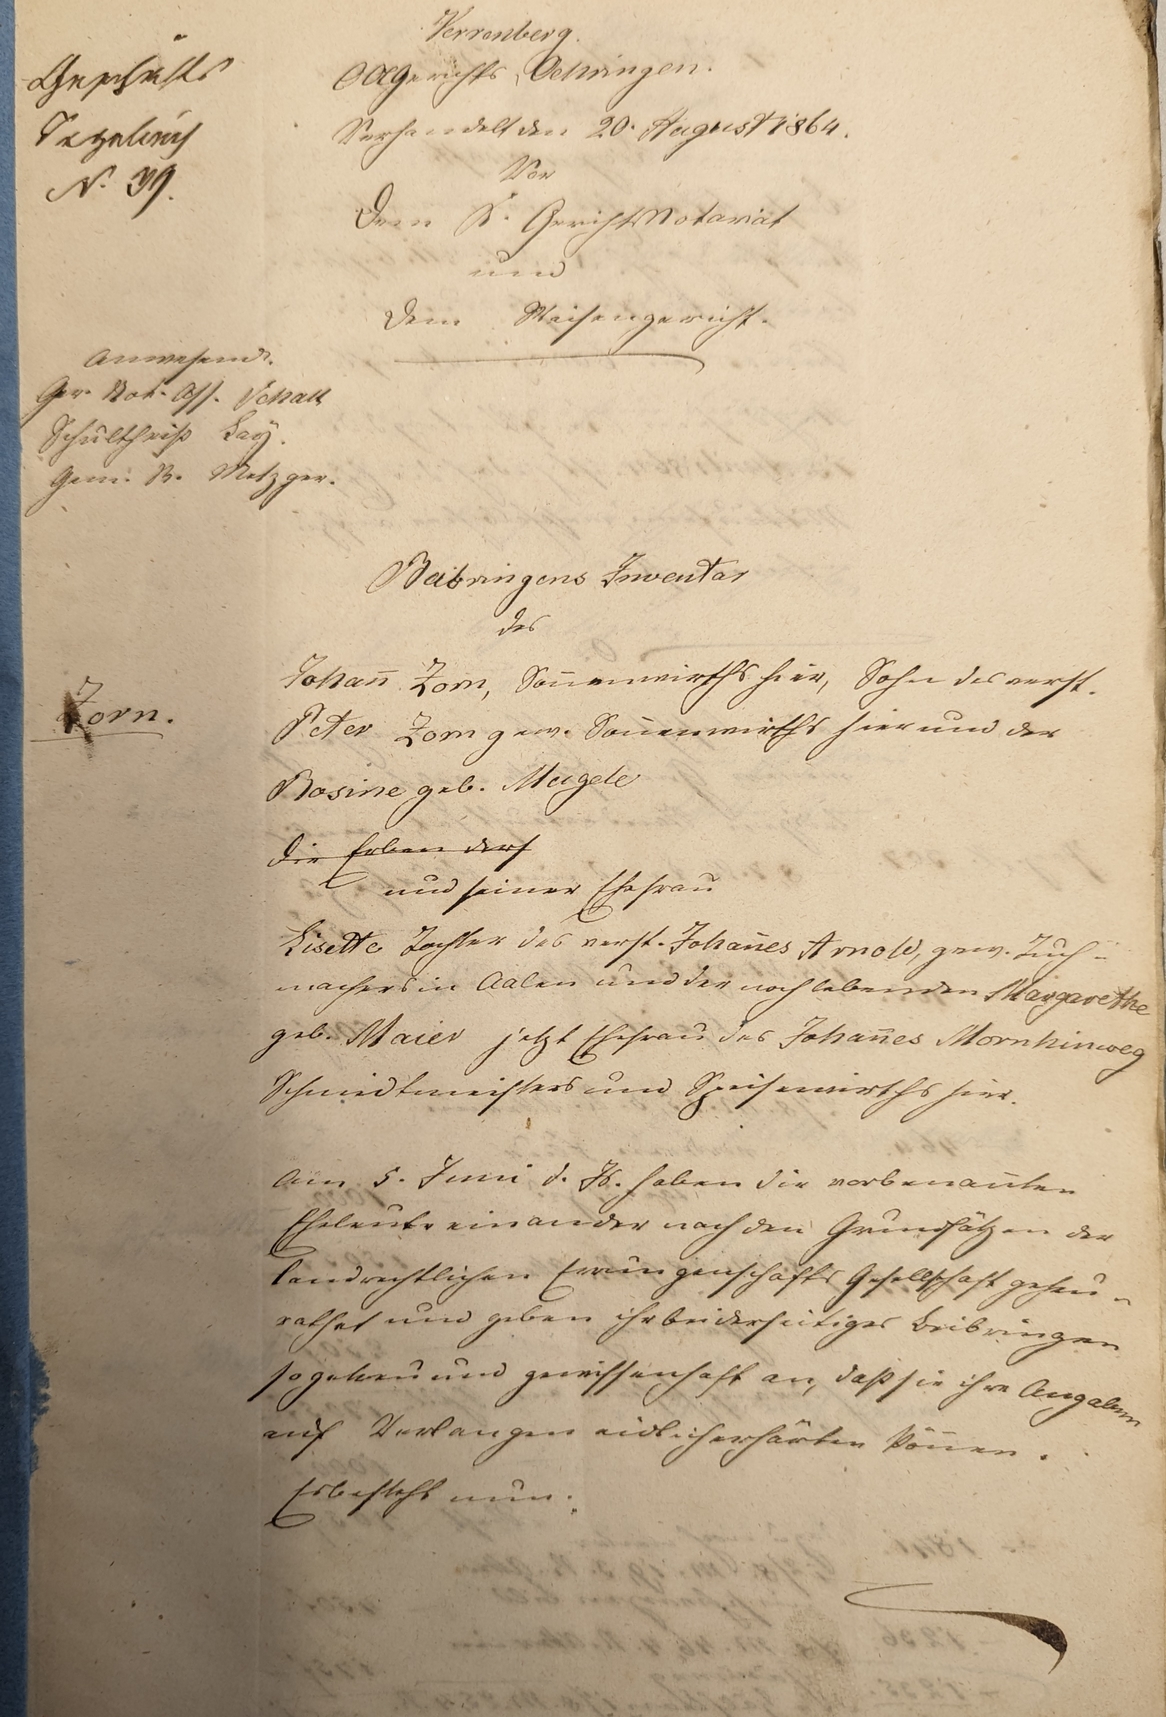 Verrenberg.
OAGerichts Oehringen.
Verhandelt den 20. August 1864.
Vor
dem K. Gerichts Notariat
und
dem Waisengericht.
Geschäfts
Tagebuch
N. 39.
Anwesend.
Ger. Not. Ass. Schall
Schultheiß Lay.
Gem. R. Metzger.
Beibringens Inventar
des
Zorn.
Johann̄ Zorn, Son̄enwirths hier, Sohn des verst.
Peter Zorn gew. Son̄enwirths hier und der
Rosine geb. Magele
die Erben ders
und seiner Ehefrau
Lisette Tochter des verst. Johan̄es Arnold, gew. Tuch-
machers in Aalen und der noch lebenden Margarethe
geb. Maier jetzt Ehefrau des Johan̄es Mornhinweg
Schmiedtmeisters und Speisewirths hier.
Am 5. Juni d. Js. haben die vorbenan̄ten
Eheleute einander nach den Grundsätzen der
landrechtlichen Errungenschafts Gesellschaft geheu-
rathet und geben ihr beiderseitiges Beibringen
so getreu und gewissenhaft an, daß sie ihre Angaben
auf Verlangen eidlich erhärten kön̄en.
Es besteht nun: